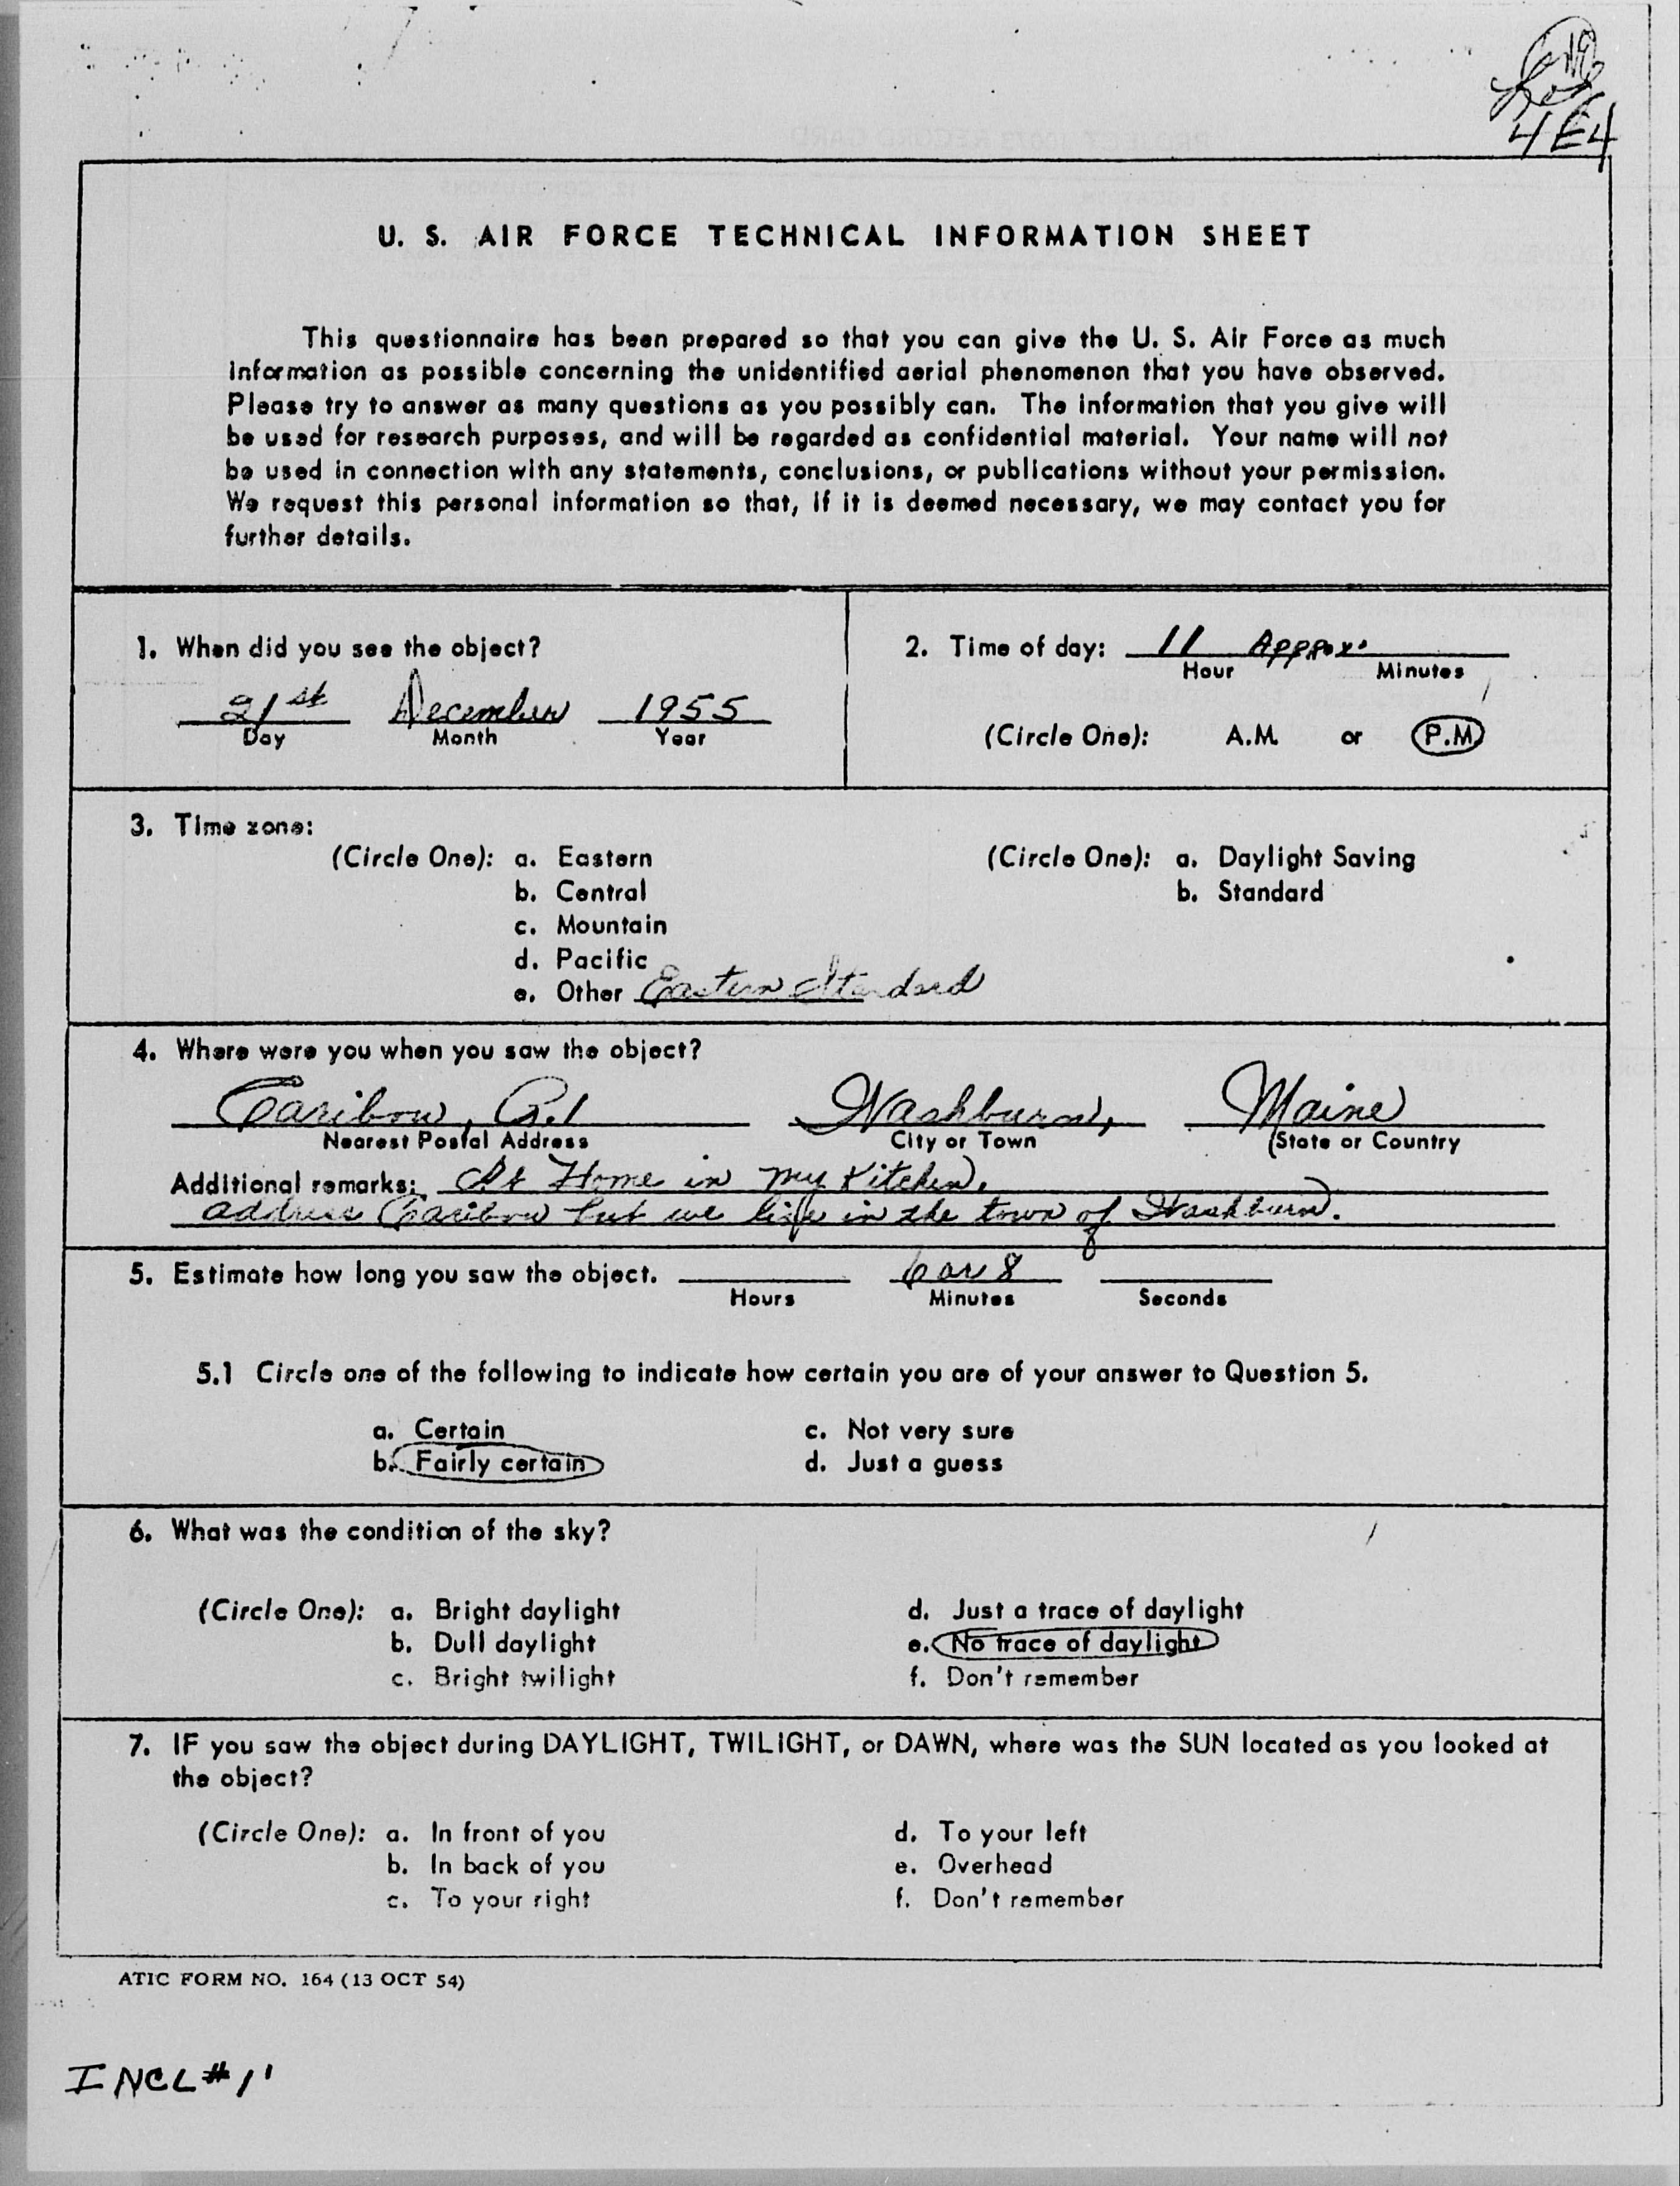 4E4
U. S. AIR FORCE TECHNICAL INFORMATION SHEET
This questionnaire has been prepared so that you can give the U. S. Air Force as much
information as possible concerning the unidentified aerial phenomenon that you have observed.
Please try to answer as many questions as you possibly can. The information that you give will
be used for research purposes, and will be regarded as confidential material. Your name will not
be used in connection with any statements, conclusions, or publications without your permission.
We request this personal information so that, if it is deemed necessary, we may contact you for
further details.
1. When did you see the object?
21st December 1955
Day Month Year
2. Time of day: 11 Approx.
Hour Minutes
(Circle One): A.M. or P.M.
3. Time zone:
(Circle One): a. Eastern
b. Central
c. Mountain
d. Pacific
e. Other Eastern Standard
(Circle One): a. Daylight Saving
b. Standard
4. Where were you when you saw the object?
Caribou, R.1 Washburn, Maine
Nearest Postal Address City or Town State or Country
Additional remarks: At Home in my Kitchen.
address Caribou but we live in the town of Washburn.
5. Estimate how long you saw the object. 6 or 8
Hours Minutes Seconds
5.1 Circle one of the following to indicate how certain you are of your answer to Question 5.
a. Certain
b. Fairly certain
c. Not very sure
d. Just a guess
6. What was the condition of the sky?
(Circle One): a. Bright daylight
b. Dull daylight
c. Bright twilight
d. Just a trace of daylight
e. No trace of daylight
f. Don't remember
7. IF you saw the object during DAYLIGHT, TWILIGHT, or DAWN, where was the SUN located as you looked at
the object?
(Circle One): a. In front of you
b. In back of you
c. To your right
d. To your left
e. Overhead
f. Don't remember
ATIC FORM NO. 164 (13 OCT 54)
INCL #1